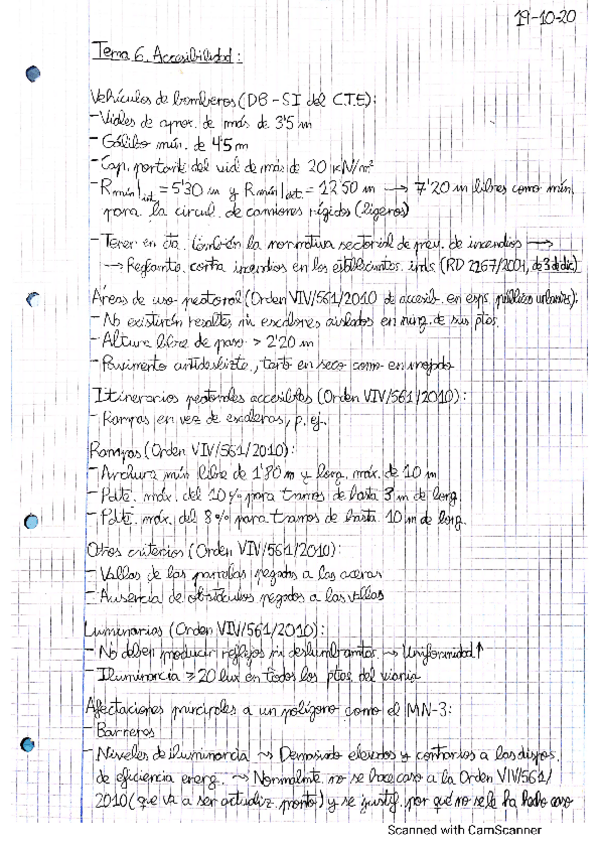 19-10-20
Tema 6. Accesibilidad:
Vehículos de bomberos (DB-SI del C.T.E):
- Viales de aprox. de más de 3'5 m
- Gálibo mín. de 4'5 m
- Cap. portante del vial de más de 20 kN/m²
- Rmín|int. = 5'30 m y Rmín|ext. = 12'50 m → 7'20 m libres como mín.
para la circul. de camiones rígidos (ligeros)
- Tener en cta. también la normativa sectorial de prev. de incendios →
→ Reglamto. contra incendios en los establecimtos. inds. (RD 2267/2004, de 3 de dic)
Áreas de uso peatonal (Orden VIV/561/2010 de accesib. en esps. públicos urbanizs):
- No existirán resaltes ni escalones aislados en ning. de sus ptos.
- Altura libre de paso > 2'20 m
- Pavimento antideslizte., tanto en seco como en mojado
Itinerarios peatonales accesibles (Orden VIV/561/2010):
- Rampas en vez de escaleras, p. ej.
Rampas (Orden VIV/561/2010):
- Anchura mín libre de 1'80 m y long. máx. de 10 m
- Pdte. máx. del 10% para tramos de hasta 3 m de long.
- Pdte. máx. del 8% para tramos de hasta 10 m de long.
Otros criterios (Orden VIV/561/2010):
- Vallas de las parcelas pegadas a las aceras
- Ausencia de obstáculos pegados a las vallas
Luminarias (Orden VIV/561/2010):
- No deben producir reflejos ni deslumbramtos. → Uniformidad ↑
- Iluminancia ≥ 20 lux en todos los ptos. del viario
Afectaciones principales a un polígono como el MN-3:
- Barreras
- Niveles de iluminancia → Demasiado elevados y contrarios a las dispos.
de eficiencia energ. → Normalmte. no se hace caso a la Orden VIV/561/
2010 (que va a ser actualiz. pronto) y se justif. por qué no se le ha hecho caso
Scanned with CamScanner